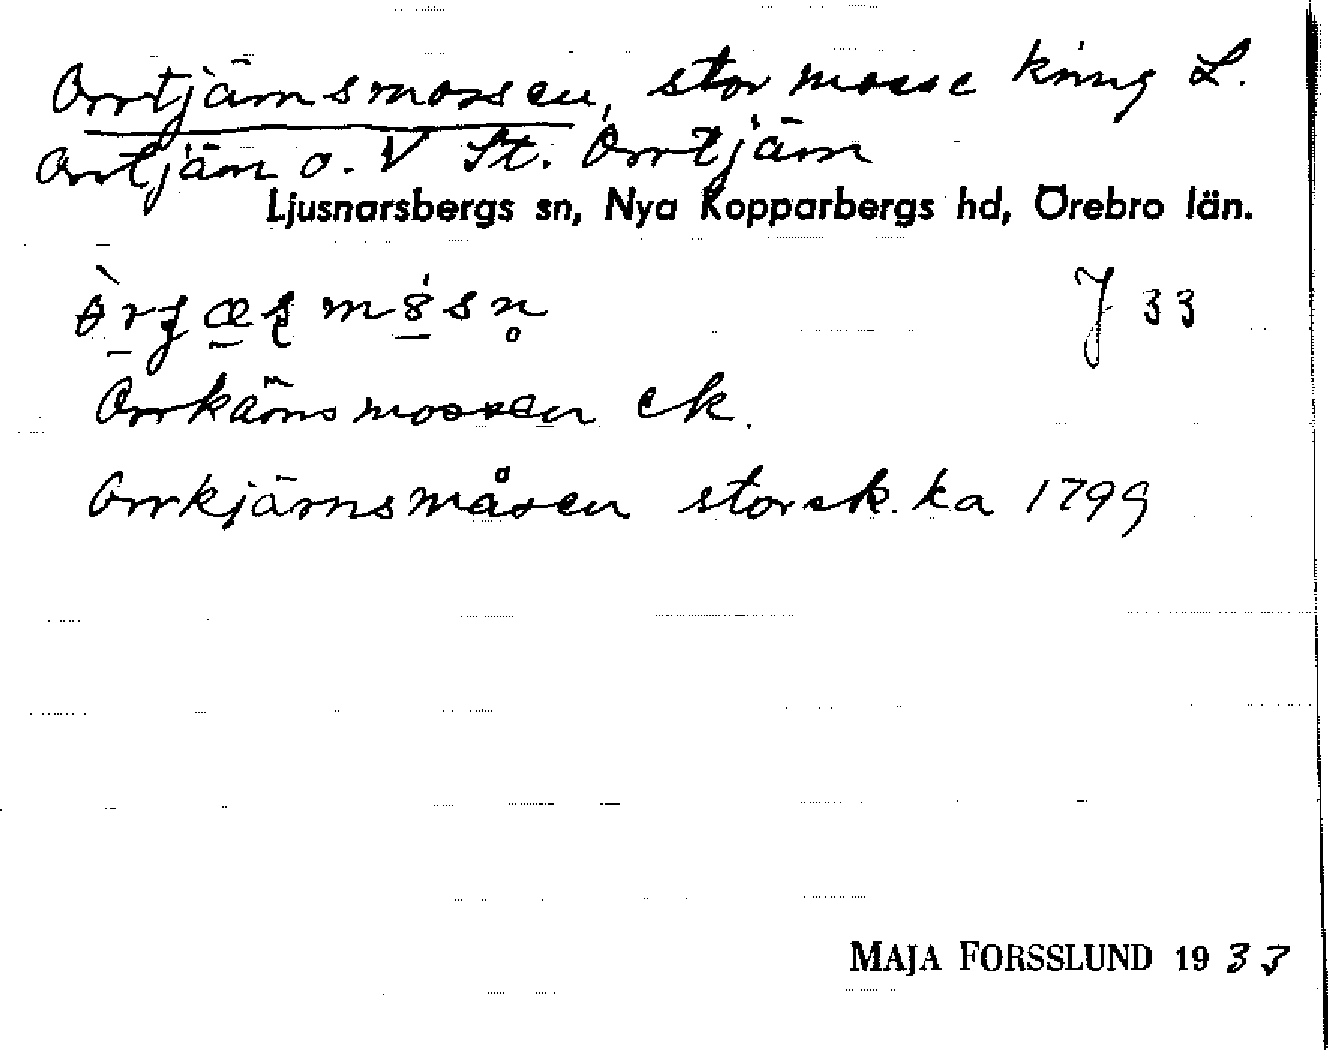 Orrtjärnsmossen, stor mosse kring L.
Orrtjärn o. V St. Orrtjärn
Ljusnarsbergs sn, Nya Kopparbergs hd, Örebro län.
J 33
Orrkärnsmossen ek.
Orrkjärnsmåsen storsk. ka 1799
MAJA FORSSLUND 1933